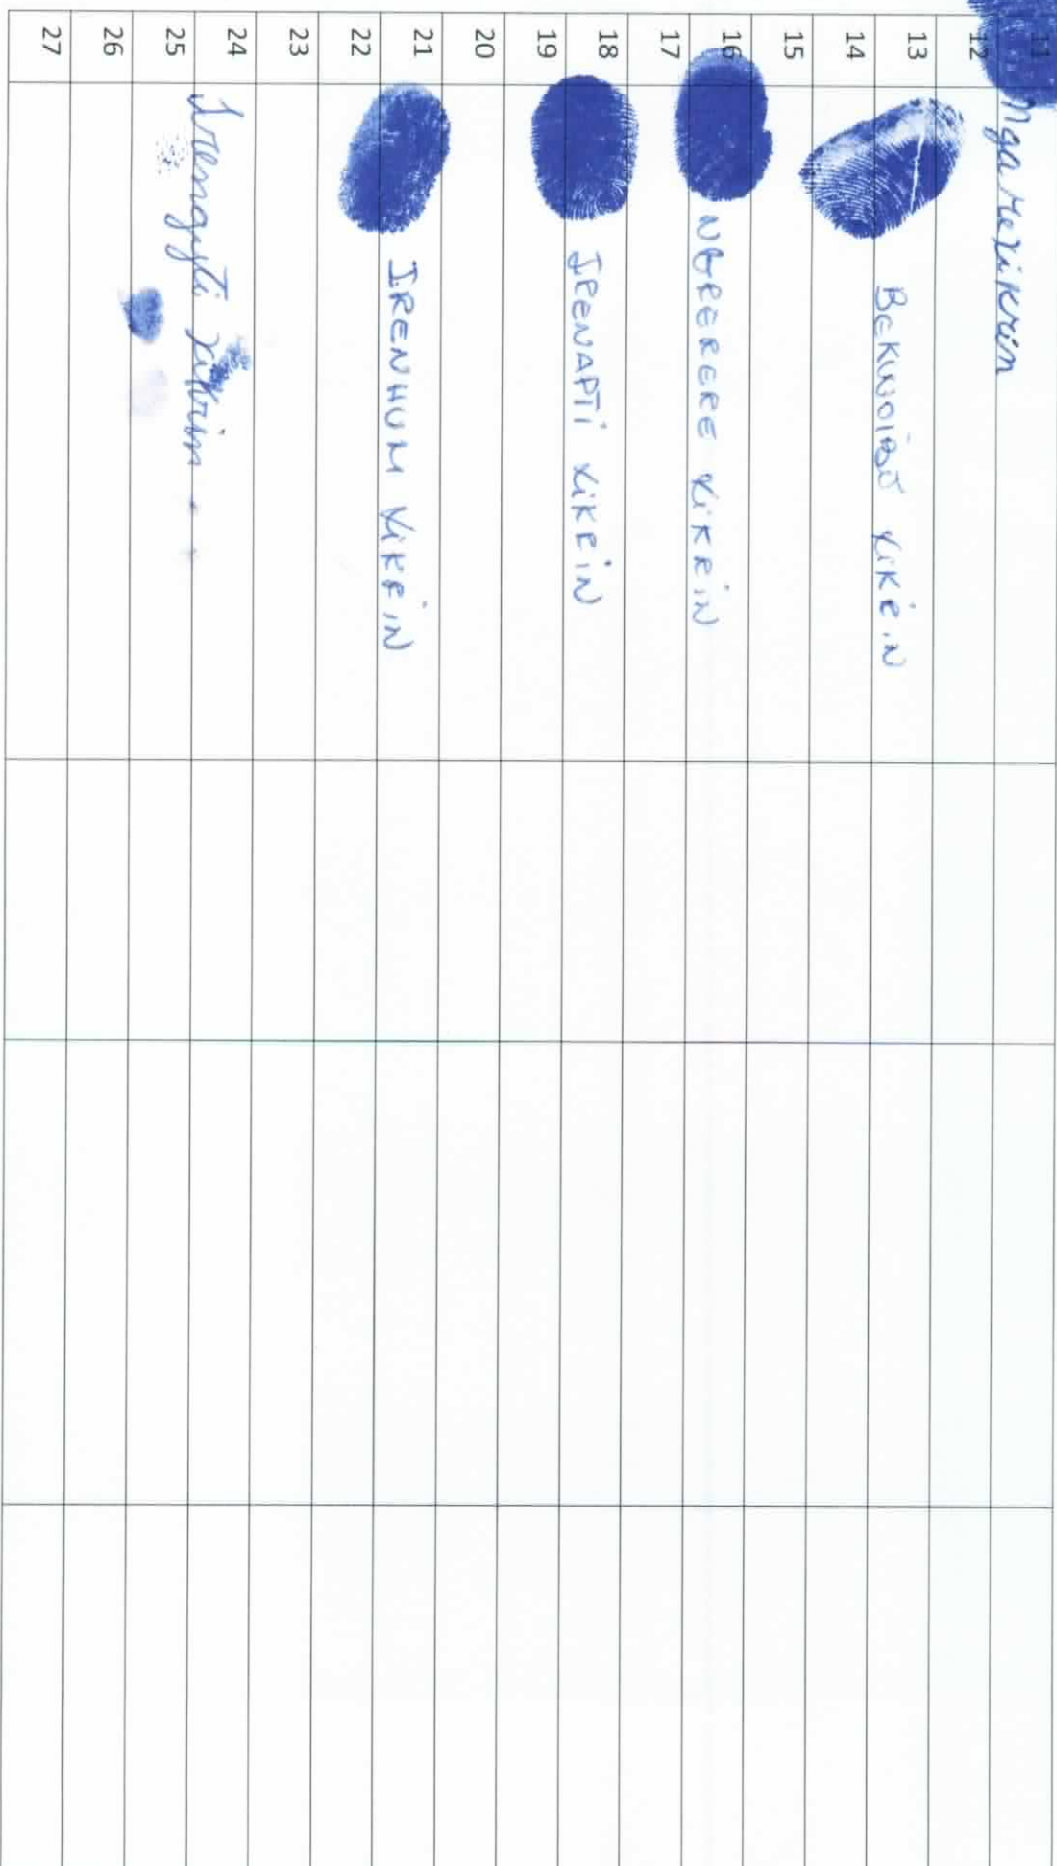 11
12 Ngarezikrin
13
14 BEKWOIBÔ XIKRIN
15
16
17 NGRERERE XIKRIN
18
19 IRENAPTI XIKRIN
20
21
22 IRENHUM XIKRIN
23
24
25 Irengyti Xikrim
26
27